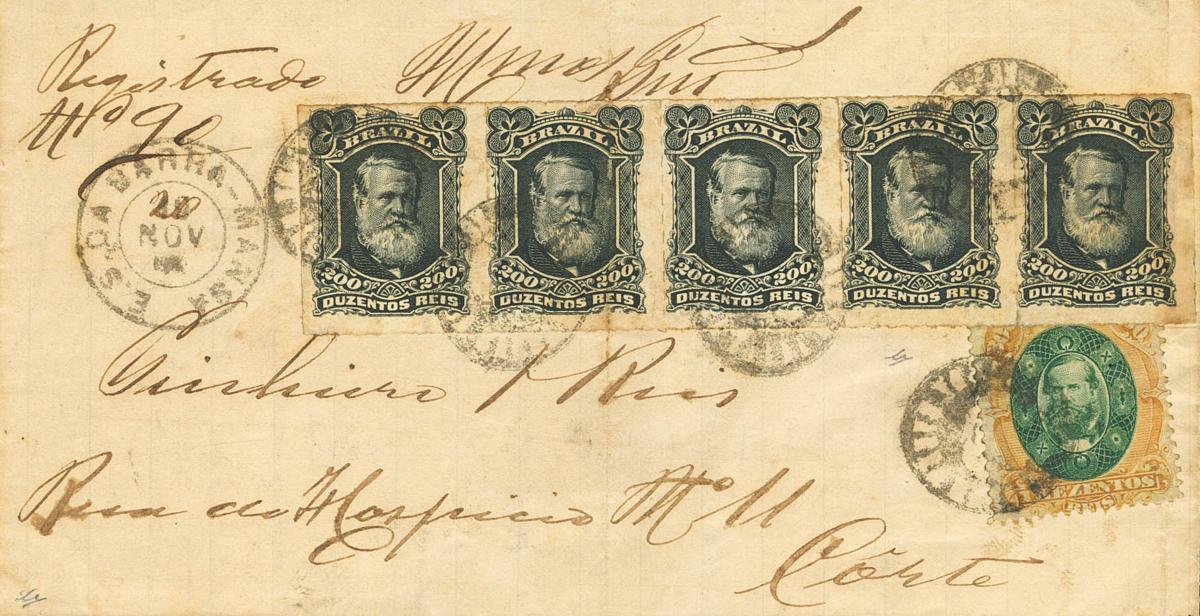 Registrado
Nº 90
E. S. DA BARRA-MANSA
20
NOV
BRAZIL BRAZIL BRAZIL BRAZIL BRAZIL
200 200 200 200 200 200 200 200 200 200
DUZENTOS REIS DUZENTOS REIS DUZENTOS REIS DUZENTOS REIS DUZENTOS REIS
Pinheiro / Reis
TREZENTOS
REIS
Rua do Hospicio Nº 11
Côrte